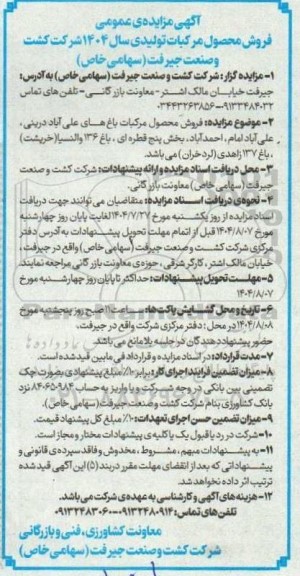 آگهی مزایده‌ی عمومی
فروش محصول مرکبات تولیدی سال ۱۴۰۴ شرکت کشت
و صنعت جیرفت (سهامی خاص)
۱- مزایده گزار: شرکت کشت و صنعت جیرفت (سهامی خاص) به آدرس:
جیرفت خیابان مالک اشتر - معاونت بازرگانی - تلفن های تماس
۰۹۱۳۳۴۸۴۰۳۲-۰۳۴۴۳۲۶۳۸۵۶
۲- موضوع مزایده: فروش محصول مرکبات باغ های علی آباد درینی،
علی آباد امام، احمدآباد، بخش پنج قطره ای، باغ ۱۳۶ والنسیا(خرپشت)
، باغ ۱۳۷ زاهدی (کردخران) می باشد.
۳- محل دریافت اسناد مزایده و ارائه پیشنهادات: شرکت کشت و صنعت
جیرفت (سهامی خاص) معاونت بازرگانی.
۴- نحوه ی دریافت اسناد مزایده: متقاضیان می توانند جهت دریافت
اسناد مزایده از روز یکشنبه مورخ ۱۴۰۴/۷/۲۷ لغایت پایان روز چهارشنبه
مورخ ۱۴۰۴/۸/۰۷ قبل از اتمام مهلت تحویل پیشنهادات به آدرس دفتر
مرکزی شرکت کشت و صنعت جیرفت (سهامی خاص) واقع در جیرفت،
خیابان مالک اشتر، کارگر شرقی، حوزه ی معاونت بازرگانی مراجعه نمایند.
۵- مهلت تحویل پیشنهادات: حداکثر تا پایان روز چهارشنبه مورخ
۱۴۰۴/۸/۰۷
۶- تاریخ و محل گشایش پاکت ها: ساعت ۱۰ صبح روز پنجشنبه مورخ
۱۴۰۴/۸/۰۸ در محل: دفتر مرکزی شرکت واقع در جیرفت،
حضور پیشنهاددهندگان در جلسه بلامانع می باشد.
۷- مدت قرارداد: در اسناد مزایده و قرارداد فی مابین قید شده است.
۸- میزان تضمین فرآیند اجرای کار: برابر ۱۰٪ مبلغ پیشنهادی بصورت چک
تضمینی بین بانکی در وجه شرکت و یا واریز به حساب نزد
بانک کشاورزی بنام شرکت کشت و صنعت جیرفت (سهامی خاص).
۹- میزان تضمین حسن اجرای تعهدات: ۱۰٪ مبلغ کل پیشنهاد قیمت.
۱۰- شرکت در رد یا قبول یک یا کلیه ی پیشنهادات مختار و مجاز است.
۱۱- به پیشنهادات مبهم، مشروط، مخدوش و فاقد سپرده ی قانونی و
پیشنهاداتی که بعد از انقضای مهلت مقرر در بند (۵) این آگهی قید شده
ترتیب اثر داده نخواهد شد.
۱۲- هزینه های آگهی و کارشناسی به عهده ی شرکت می باشد.
تلفن های تماس: ۰۹۱۳۲۴۸۰۹۱۴-۰۹۱۳۲۴۸۳۰۶۰
معاونت کشاورزی، فنی و بازرگانی
شرکت کشت و صنعت جیرفت (سهامی خاص)